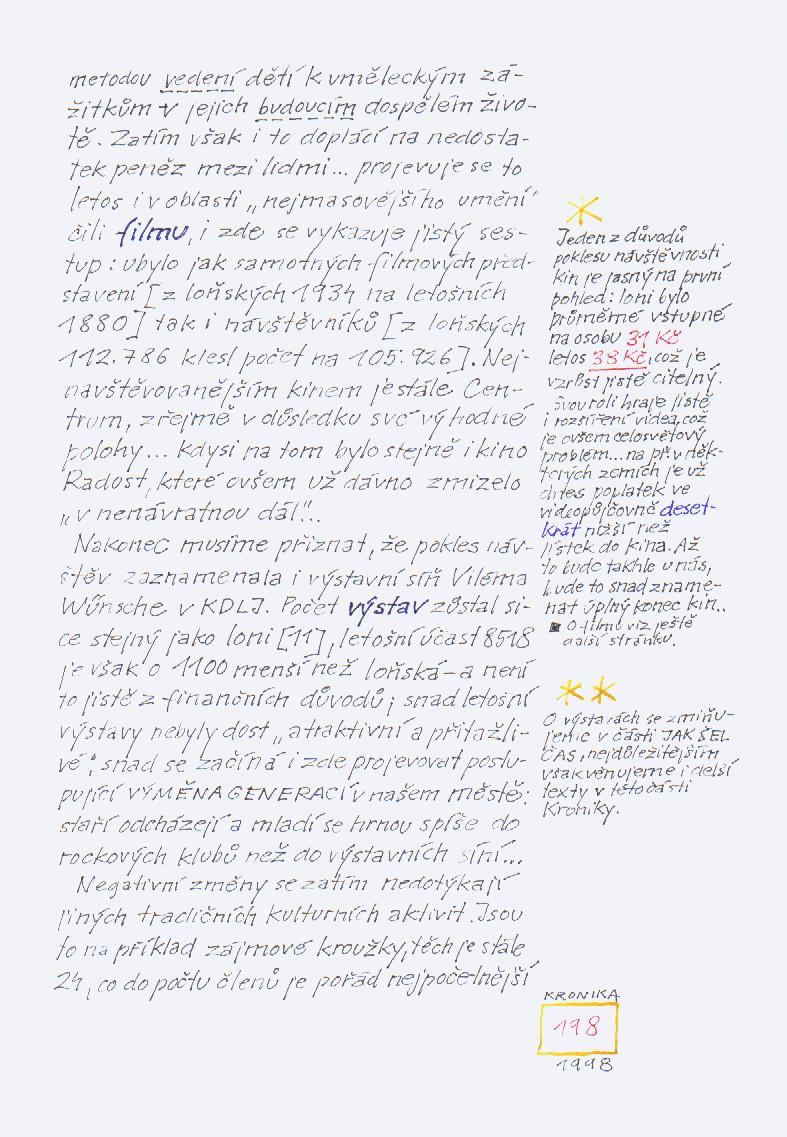 metodou vedení dětí k uměleckým zá-
žitkům v jejich budoucím dospělém živo-
tě. Zatím však i to doplácí na nedosta-
tek peněz mezi lidmi... projevuje se to
letos i v oblasti „nejmasovějšího umění"
čili filmu, i zde se vykazuje jistý ses-
tup: ubylo jak samotných filmových před-
stavení [z loňských 1934 na letošních
1880] tak i návštěvníků [z loňských
112.786 klesl počet na 105.926]. Nej-
navštěvovanějším kinem je stále Cen-
trum, zřejmě v důsledku své výhodné
polohy... kdysi na tom bylo stejně i kino
Radost, které ovšem už dávno zmizelo
„v nenávratnou dál"...
Nakonec musíme přiznat, že pokles náv-
štěv zaznamenala i výstavní síň Viléma
Wünsche v KDLJ. Počet výstav zůstal si-
ce stejný jako loni [11], letošní účast 8518
je však o 1100 menší než loňská – a není
to jistě z finančních důvodů; snad letošní
výstavy nebyly dost „atraktivní a přitažli-
vé", snad se začíná i zde projevovat postu-
pující VÝMĚNA GENERACÍ v našem městě:
staří odcházejí a mladí se hrnou spíše do
rockových klubů než do výstavních síní...
Negativní změny se zatím nedotýkají
jiných tradičních kulturních aktivit. Jsou
to na příklad zájmové kroužky, těch je stále
24, co do počtu členů je pořád nejpočetnější
*
Jeden z důvodů
poklesu návštěvnosti
kin je jasný na první
pohled: loni bylo
průměrné vstupné
na osobu 31 Kč
letos 38 Kč, což je
vzrůst jistě citelný.
Svou roli hraje jistě
i rozšíření videa, což
je ovšem celosvětový
problém... na př. v něk-
terých zemích je už
dnes poplatek ve
videopůjčovně deset-
krát nižší než
lístek do kina. Až
to bude takhle u nás,
bude to snad zname-
nat úplný konec kin..
■ O filmu viz ještě
další stránku.
**
O výstavách se zmiňu-
jeme v části JAK ŠEL
ČAS, nejdůležitějším
však věnujeme i delší
texty v této části
Kroniky.
KRONIKA
198
1998